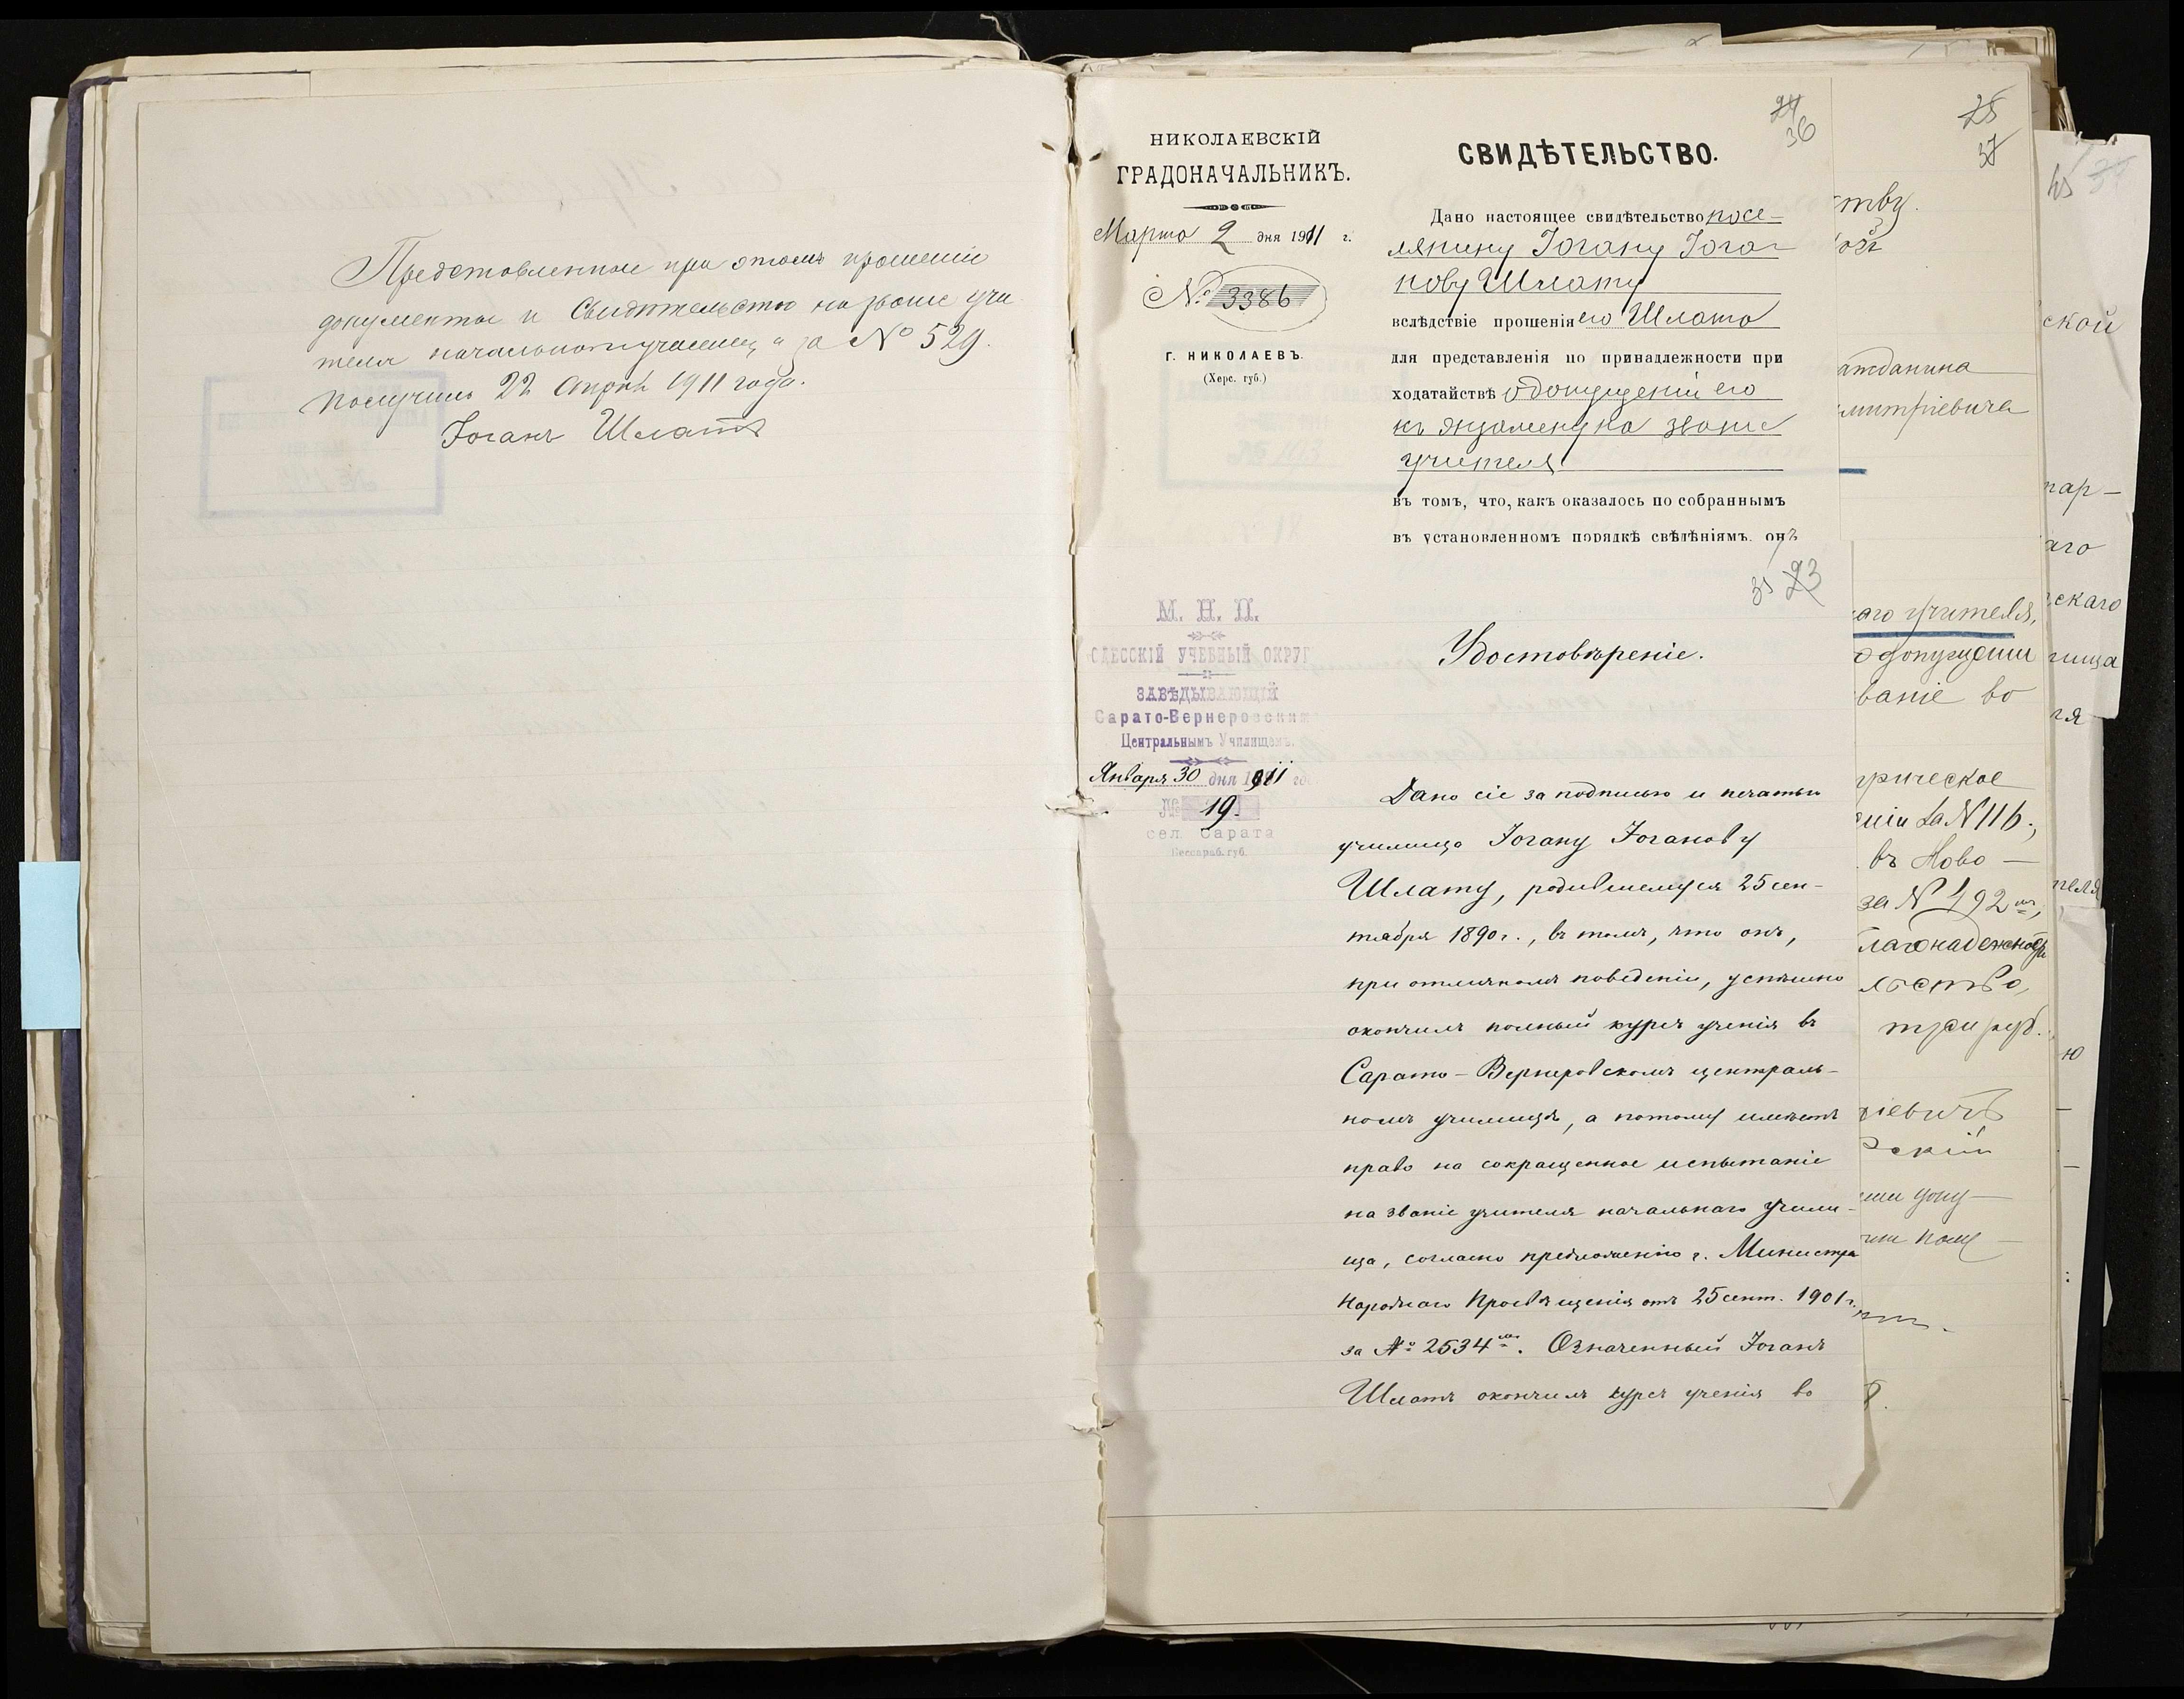 Представленные при этомъ прошеніи
документы и Свидѣтельство на званіе учи
теля начальнаго училища за № 529.
получилъ 22 Апрѣля 1911 года.
Іоганъ Шлатъ
НИКОЛАЕВСКІЙ
ГРАДОНАЧАЛЬНИКЪ.
Марта 2 дня 1911 г.
№ 3386
Г. НИКОЛАЕВЪ.
(Херс. губ.)
24
36
СВИДѢТЕЛЬСТВО.
Дано настоящее свидѣтельство посе-
лянину Іогану Іога-
нову Шлату
вслѣдствіе прошенія его Шлата
для представленія по принадлежности при
ходатайствѣ о допущеніи его
къ экзамену на званіе
учителя
въ томъ, что, какъ оказалось по собраннымъ
въ установленномъ порядкѣ свѣдѣніямъ, онъ
35 23
М. Н. П.
ОДЕССКІЙ УЧЕБНЫЙ ОКРУГ
ЗАВѢДЫВАЮЩІЙ
Сарато-Вернеровскимъ
Центральнымъ Училищемъ.
Января 30 дня 1911 год
№ 19.
сел. Сарата
Бессараб. губ.
Удостовѣреніе.
Дано сіе за подписью и печатью
училища Іогану Іоганову
Шлату, родившемуся 25 сен-
тября 1890 г., въ томъ, что онъ,
при отличномъ поведеніи, успѣшно
окончилъ полный курсъ ученія въ
Сарато-Вернеровскомъ централь-
номъ училищѣ, а потому имѣетъ
право на сокращенное испытаніе
на званіе учителя начальнаго учили-
ща, согласно предложенію г. Министра
Народнаго Просвѣщенія отъ 25 сент. 1901 г.
за № 2534мъ. Означенный Іоганъ
Шлатъ окончилъ курсъ ученія во
25
37
тву.
ой
атданина
митріевича
аго учителя,
о допущеніи
ваніе во
рическое
еніи за N 116;
въ Ново-
за N 492мъ,
лагонадежнос
ство,
три руб.
ріевичъ
скій
ской
пар-
аго
скаго
лища
ля
теля
ю